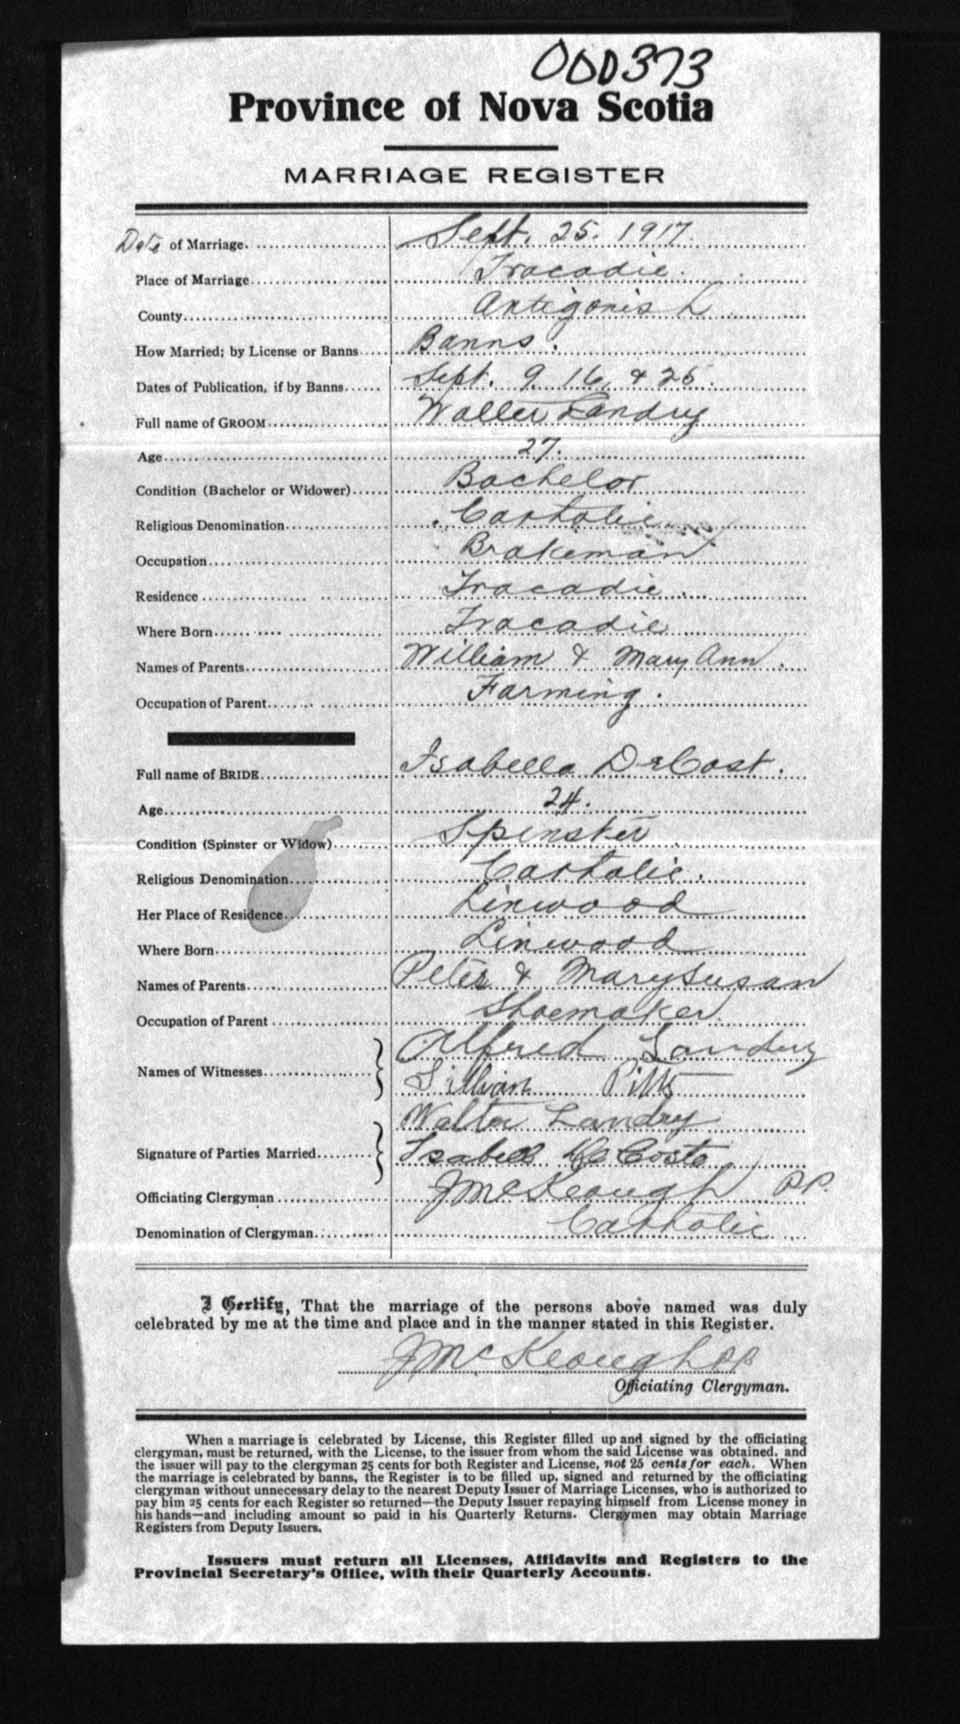 000373
Province of Nova Scotia
MARRIAGE REGISTER
Date of Marriage. Sept. 25. 1917.
Place of Marriage Tracadie.
County Antigonish
How Married; by License or Banns Banns.
Dates of Publication, if by Banns Sept. 9. 16, & 25.
Full name of GROOM Walter Landry
Age 27.
Condition (Bachelor or Widower) Bachelor
Religious Denomination Catholic.
Occupation Brakeman
Residence Tracadie.
Where Born Tracadie
Names of Parents William & Mary Ann.
Occupation of Parent Farming.
Full name of BRIDE Isabella DeCost.
Age 24.
Condition (Spinster or Widow) Spinster.
Religious Denomination Catholic.
Her Place of Residence Linwood
Where Born Linwood
Names of Parents Peter & Mary Susan
Occupation of Parent Shoemaker.
Names of Witnesses Alfred Landry
Lillian Pitts
Walter Landry
Signature of Parties Married Isabell De Coste
Officiating Clergyman J McKeough P.P.
Denomination of Clergyman Catholic
I Certify, That the marriage of the persons above named was duly
celebrated by me at the time and place and in the manner stated in this Register.
J McKeough PP
Officiating Clergyman.
When a marriage is celebrated by License, this Register filled up and signed by the officiating
clergyman, must be returned, with the License, to the issuer from whom the said License was obtained, and
the issuer will pay to the clergyman 25 cents for both Register and License, not 25 cents for each. When
the marriage is celebrated by banns, the Register is to be filled up, signed and returned by the officiating
clergyman without unnecessary delay to the nearest Deputy Issuer of Marriage Licenses, who is authorized to
pay him 25 cents for each Register so returned—the Deputy Issuer repaying himself from License money in
his hands—and including amount so paid in his Quarterly Returns. Clergymen may obtain Marriage
Registers from Deputy Issuers.
Issuers must return all Licenses, Affidavits and Registers to the
Provincial Secretary's Office, with their Quarterly Accounts.